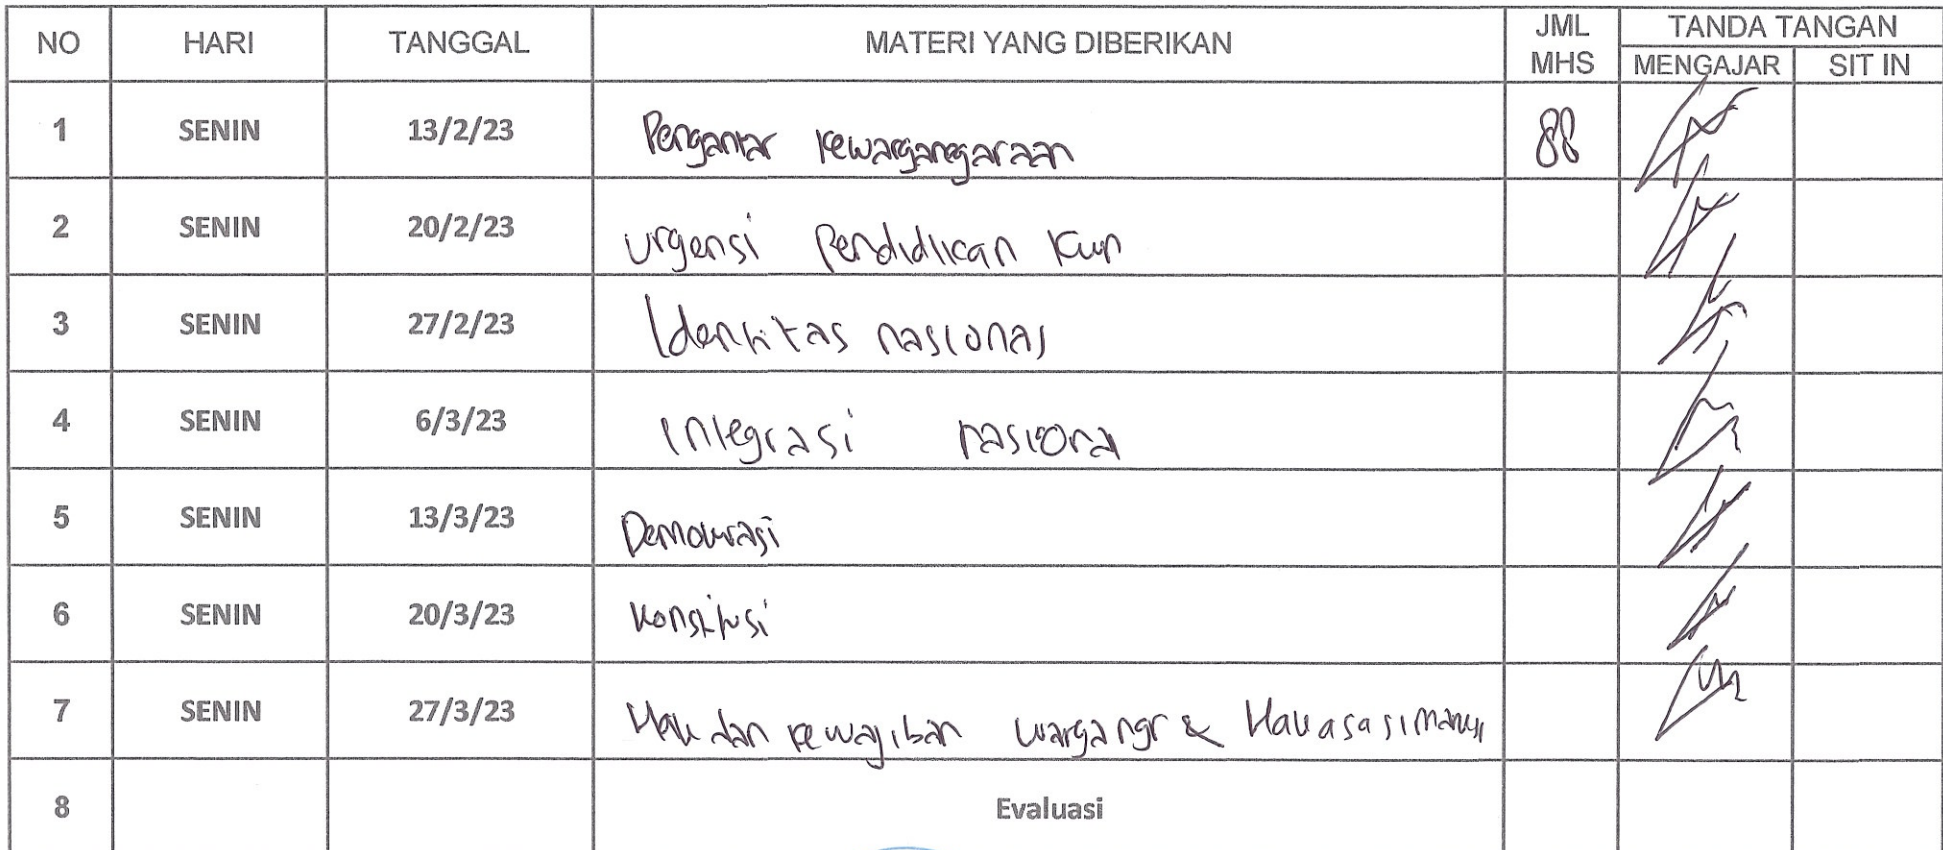 NO HARI TANGGAL MATERI YANG DIBERIKAN JML MHS TANDA TANGAN
MENGAJAR SIT IN
1 SENIN 13/2/23 Pengantar kewarganegaraan 88
2 SENIN 20/2/23 urgensi Pendidikan Kwn
3 SENIN 27/2/23 Identitas nasional
4 SENIN 6/3/23 Integrasi nasiona
5 SENIN 13/3/23 Demokrasi
6 SENIN 20/3/23 Konstitusi
7 SENIN 27/3/23 Hak dan kewajiban wargangr & Hak asasi
8 Evaluasi